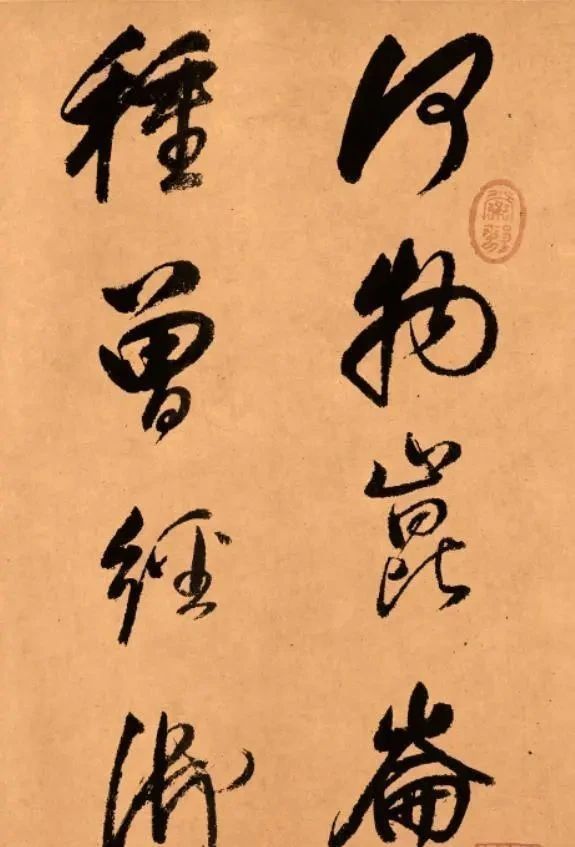 何物崑崙
種曾經